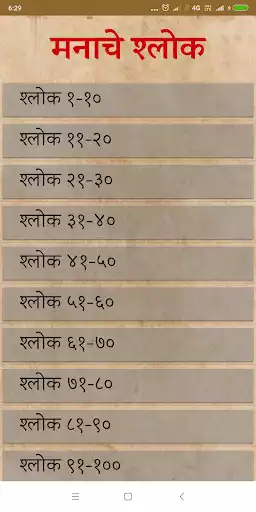 6:29
... 4G
मनाचे श्लोक
श्लोक १-१०
श्लोक ११-२०
श्लोक २१-३०
श्लोक ३१-४०
श्लोक ४१-५०
श्लोक ५१-६०
श्लोक ६१-७०
श्लोक ७१-८०
श्लोक ८१-९०
श्लोक ९१-१००